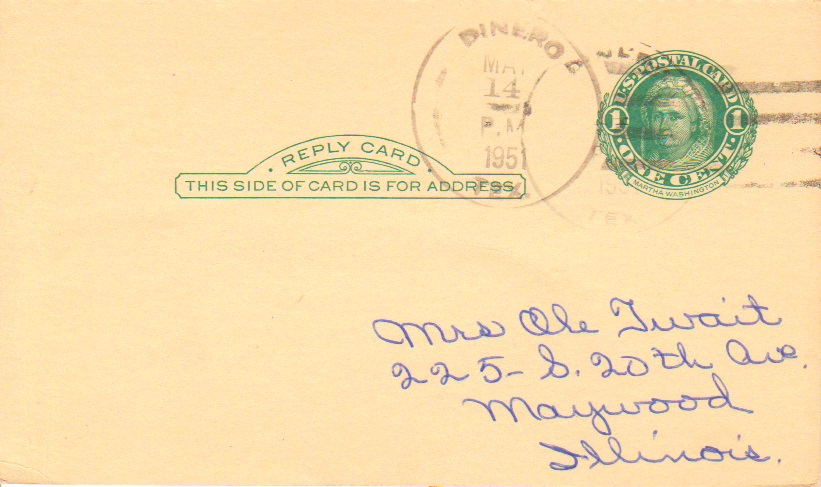 DINERO
MAY
14
P.M.
1951
TEX.
TEX
U.S. POSTAL CARD
1 1
ONE CENT
MARTHA WASHINGTON
REPLY CARD
THIS SIDE OF CARD IS FOR ADDRESS
Mrs Ole Twait
225- S. 20th Ave.
Maywood
Illinois.